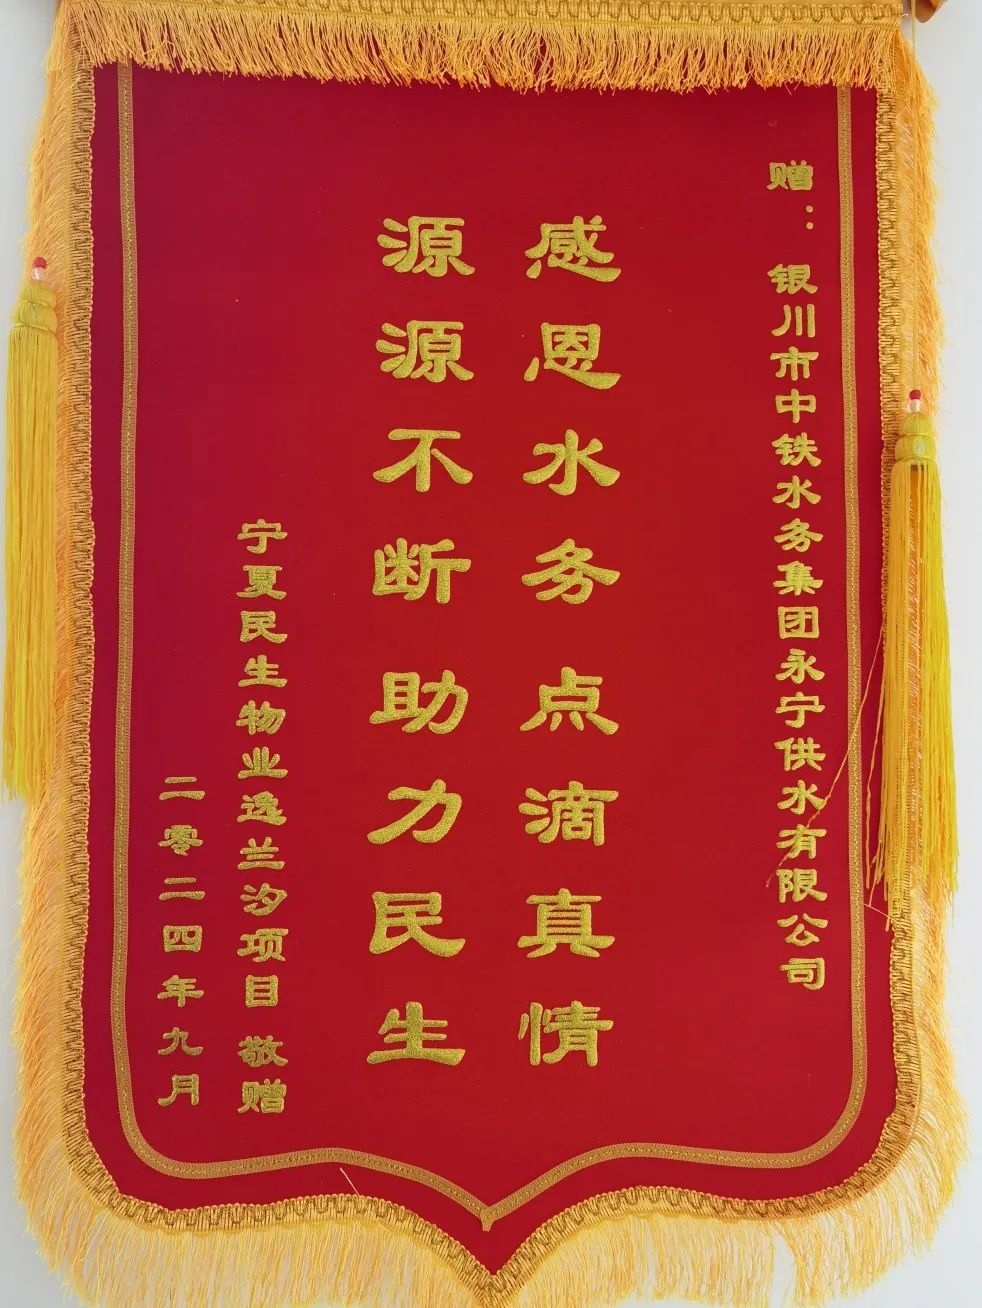 赠：银川市中铁水务集团永宁供水有限公司
感恩水务点滴真情
源源不断助力民生
宁夏民生物业逸兰汐项目 敬赠
二零二四年九月